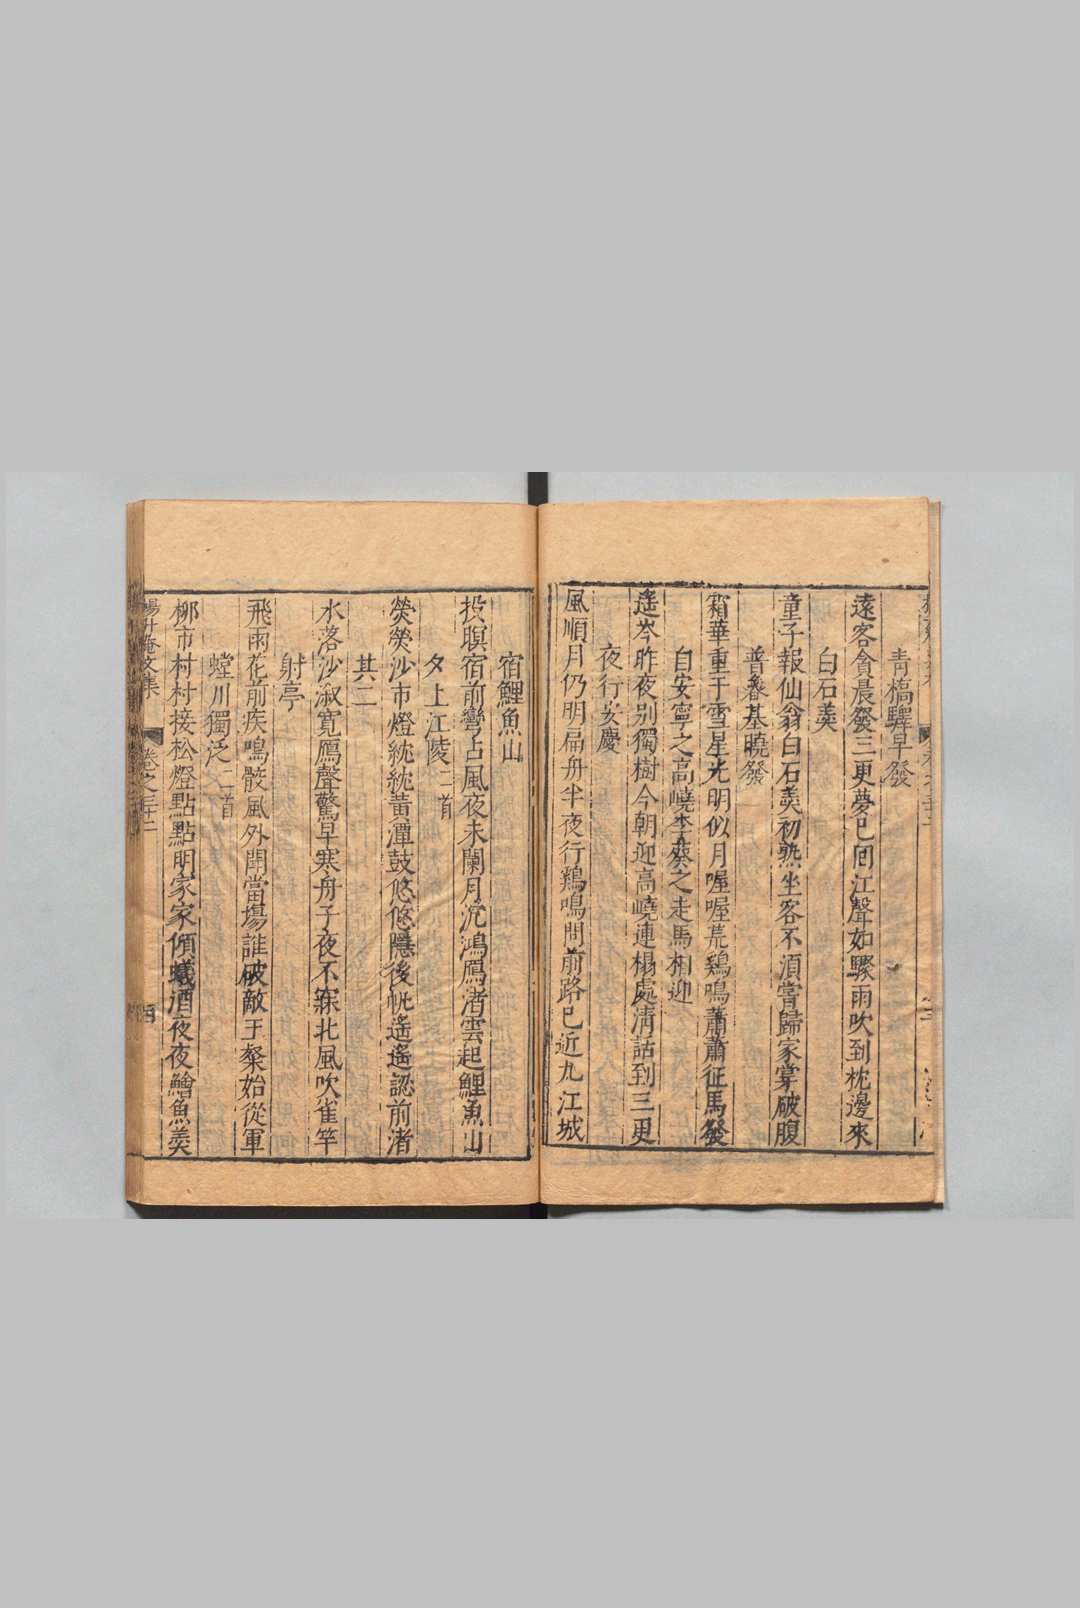 青橋驛早發
遠客會晨發三更夢已囘江聲如驟雨吹到枕邊來
白石羮
童子報仙翁白石羮初熟坐客不湏嘗歸家掌破腹
普彞基曉發
霜華重于雪星光明似月喔喔荒鷄鳴蕭蕭征馬發
自安寧之高嶢李癸之走馬相迎
遥岑昨夜别獨樹今朝迎高嶢連榻處清話到三更
夜行安慶
風順月仍明扁舟半夜行鷄鳴問前路已近九江城
宿鯉魚山
投暝宿前灣占風夜未闌月沉鴻鴈渚雲起鯉魚山
夕上江陵二首
熒熒沙市燈紞紞黄潭鼓悠悠隱後帆遥遥認前渚
其二
水落沙溆寛鴈聲驚早寒舟子夜不寐北風吹雀竿
射亭
飛雨花前疾鳴骹風外聞當塲誰破敵王粲始從軍
螳川獨泛二首
柳市村村接松燈點點明家家傾蟻酒夜夜鱠魚羮
楊升菴文集 卷之三十二